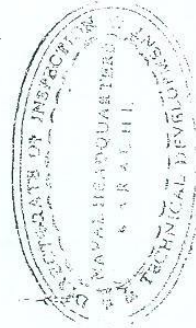 DIRECTORATE OF INSPECTION
TECHNICAL DEVELOPMENT
NAVAL HEADQUARTERS
KARACHI